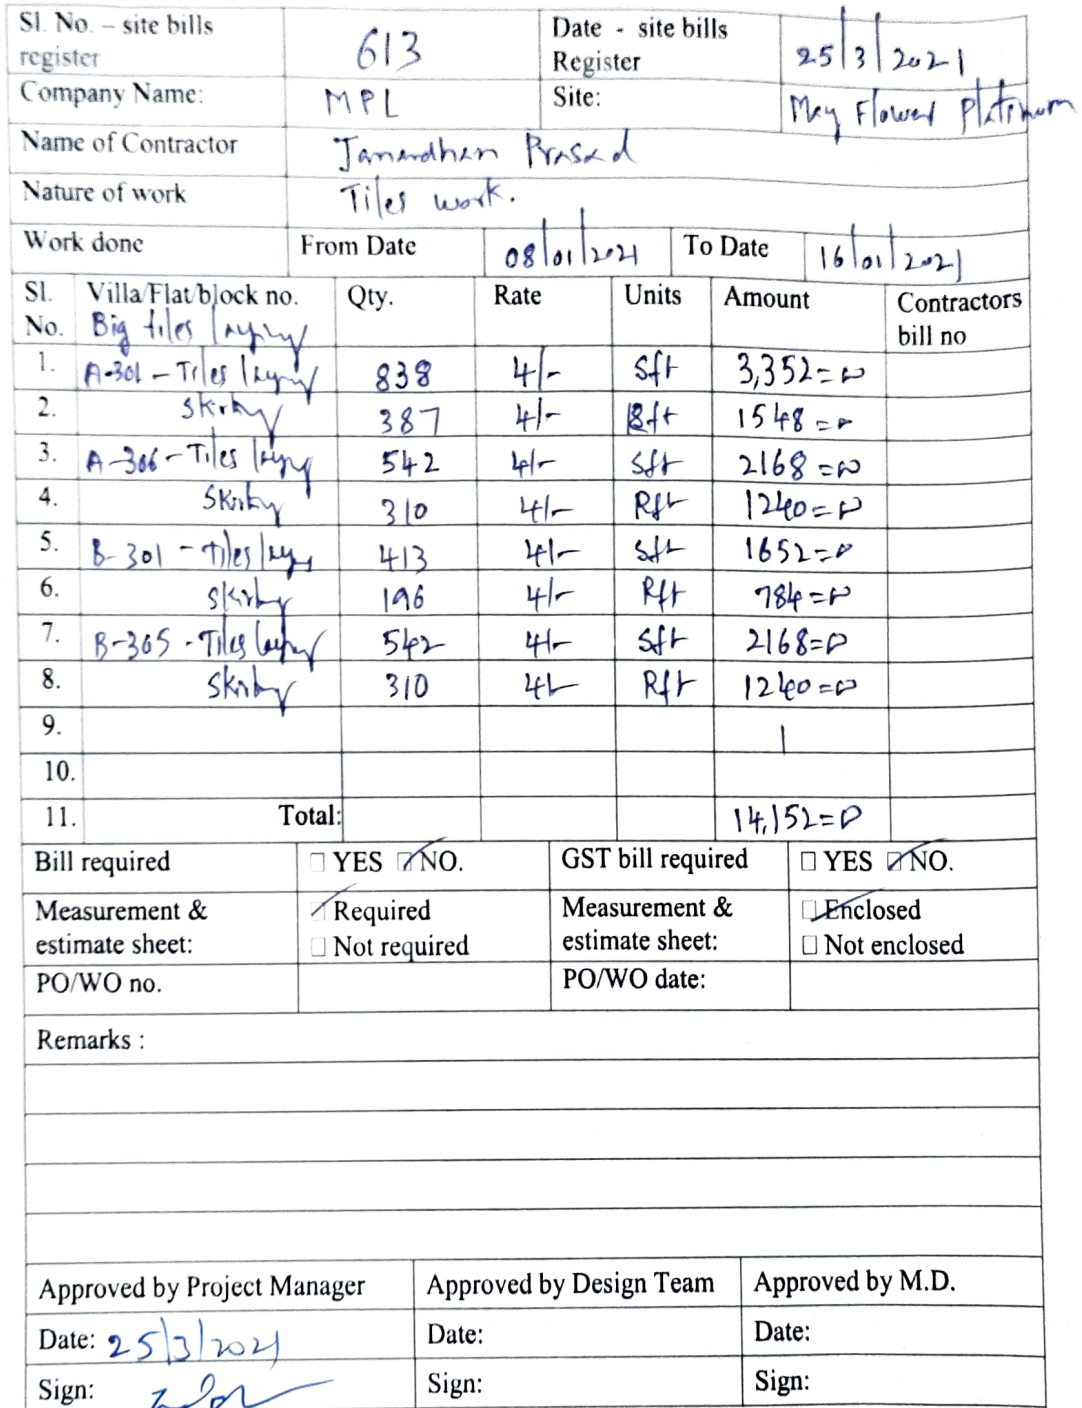 Sl. No. – site bills register 613 Date - site bills Register 25/3/2021
Company Name: MPL Site: May Flower Platinum
Name of Contractor Janardhan Prasad
Nature of work Tiles work.
Work done From Date 08/01/2021 To Date 16/01/2021
Sl. No. Villa/Flat/block no. Qty. Rate Units Amount Contractors bill no
Big tiles laying
1. A-301 - Tiles laying 838 4/- Sft 3,352=00
2. Skirting 387 4/- Rft 1548=00
3. A-306 - Tiles laying 542 4/- Sft 2168=00
4. Skirting 310 4/- Rft 1240=00
5. B-301 - Tiles laying 413 4/- Sft 1652=00
6. Skirting 196 4/- Rft 784=00
7. B-305 - Tiles laying 542 4/- Sft 2168=00
8. Skirting 310 4/- Rft 1240=00
9.
10.
11. Total: 14,152=00
Bill required YES NO. GST bill required YES NO.
Measurement & estimate sheet: Required Not required Measurement & estimate sheet: Enclosed Not enclosed
PO/WO no. PO/WO date:
Remarks :
Approved by Project Manager Approved by Design Team Approved by M.D.
Date: 25/3/2021 Date: Date:
Sign: Sign: Sign: